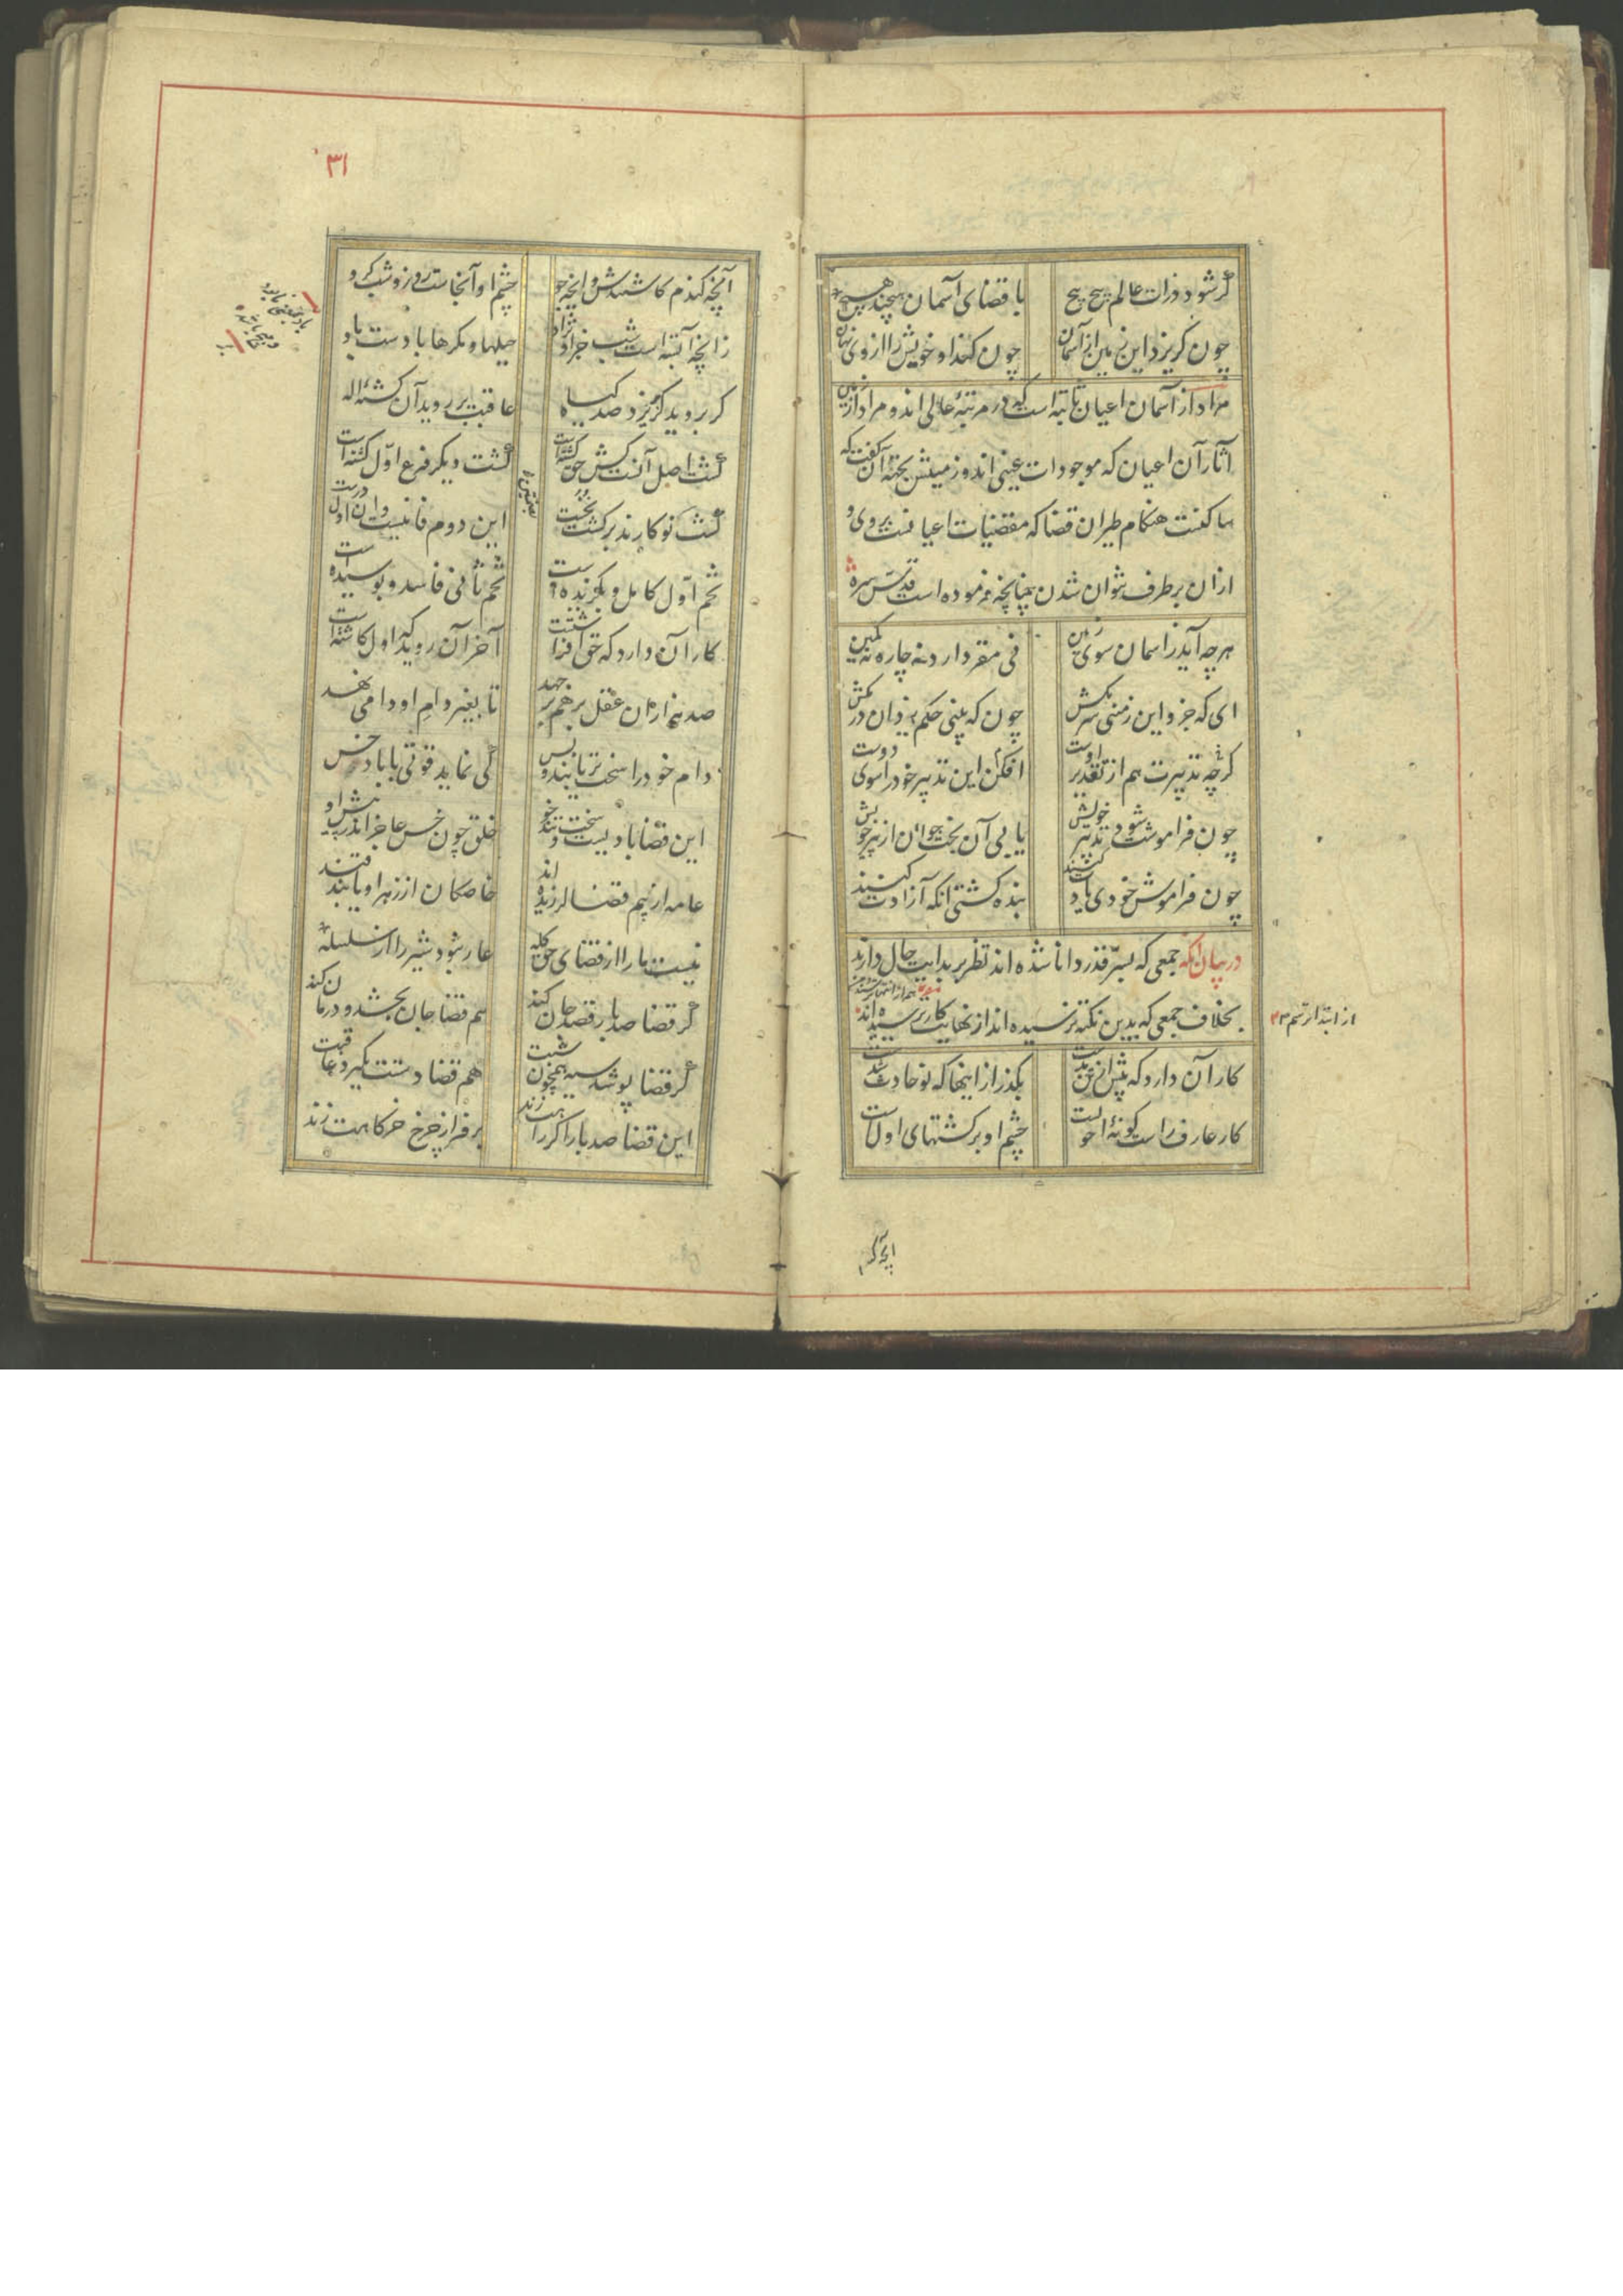 گرشود ذرات عالم پیچ پیچ با قضای آسمان هیچند هیچ
چون گریزد این زمین از آسمان چون کند او خویش را از وی نهان
مراد از آسمان اعیان ثابته است که در مرتبهٔ عالی اند و مراد از زمین
آثار آن اعیان که موجودات عینی اند و زمینش بجهة آن گفت که
ساکنست هنگام طیران قضا که مقتضیات اعیانست بروی و
ازان برطرف نتوان شدن چنانچه فرموده است قدس سره
هرچه آید ز آسمان سوی زمین نی مقر دارد نه چاره نه کمین
ای که جزو این زمینی سر مکش چون که بینی حکم یزدان در مکش
گرچه تدبیرت هم از تقدیر اوست افکن این تدبیر خود را سوی دوست
چون فراموشت شود تدبیر خویش یابی آن بخت جوان از پیر خویش
چون فراموش خودی یادت کنند بنده گشتی انکه آزادت کنند
در بیان انکه جمعی که بسرّ قدر دانا شده اند نظر بر بدایت حال دارند
بخلاف جمعی که بدین نکته نرسیده اند از نهایت کار ترسیده اند
از ابتدا ترسم
کار آن دارد که پیش از تن بدست بگذر از اینها که نو حادث شدست
کار عارف راست کو نه احولست چشم او بر کشتهای اولست
انچه گندم
۳۱
آنچه گندم کاشتندش وانچه جو چشم او آنجاست روز و شب گرو
زانچه آبستست شب جز آن نزاد حیلها و مکرها باد ست باد
گر بروید گر بریزد صد گیاه عاقبت بر روید آن کشتهٔ اله
کشت اصل آنست کش حق کشته است کشت دیگر فرع اوّل کشته است
کشت نو کارند بر کشت نخست این دوم فانیست وان اول درست
تخم اول کامل و بگزیده است تخم ثانی فاسد و پوسیده است
کار آن دارد که حق افراشتست آخر آن روید که اول کاشته است
صد هزاران عقل برهم برجهد تا بغیر دام او دامی نهد
دام خود را سخت تر یابند و بس کی نماید قوتی با باد خس
این قضا بادیست سخت و تند خو خلق چون خس عاجز اندر پیش او
عامه از بیم قضا لرزیده اند خاصگان از زهر او یابند قند
نیست ما را از قضای حق گله عار نبود شیر را از سلسله
گر قضا صد بار قصد جان کند هم قضا جان بخشد و درمان کند
گر قضا پوشد سیه همچون شبت هم قضا دستت بگیرد عاقبت
این قضا صد بار اگر راهت زند بر فراز چرخ خرگاهت زند